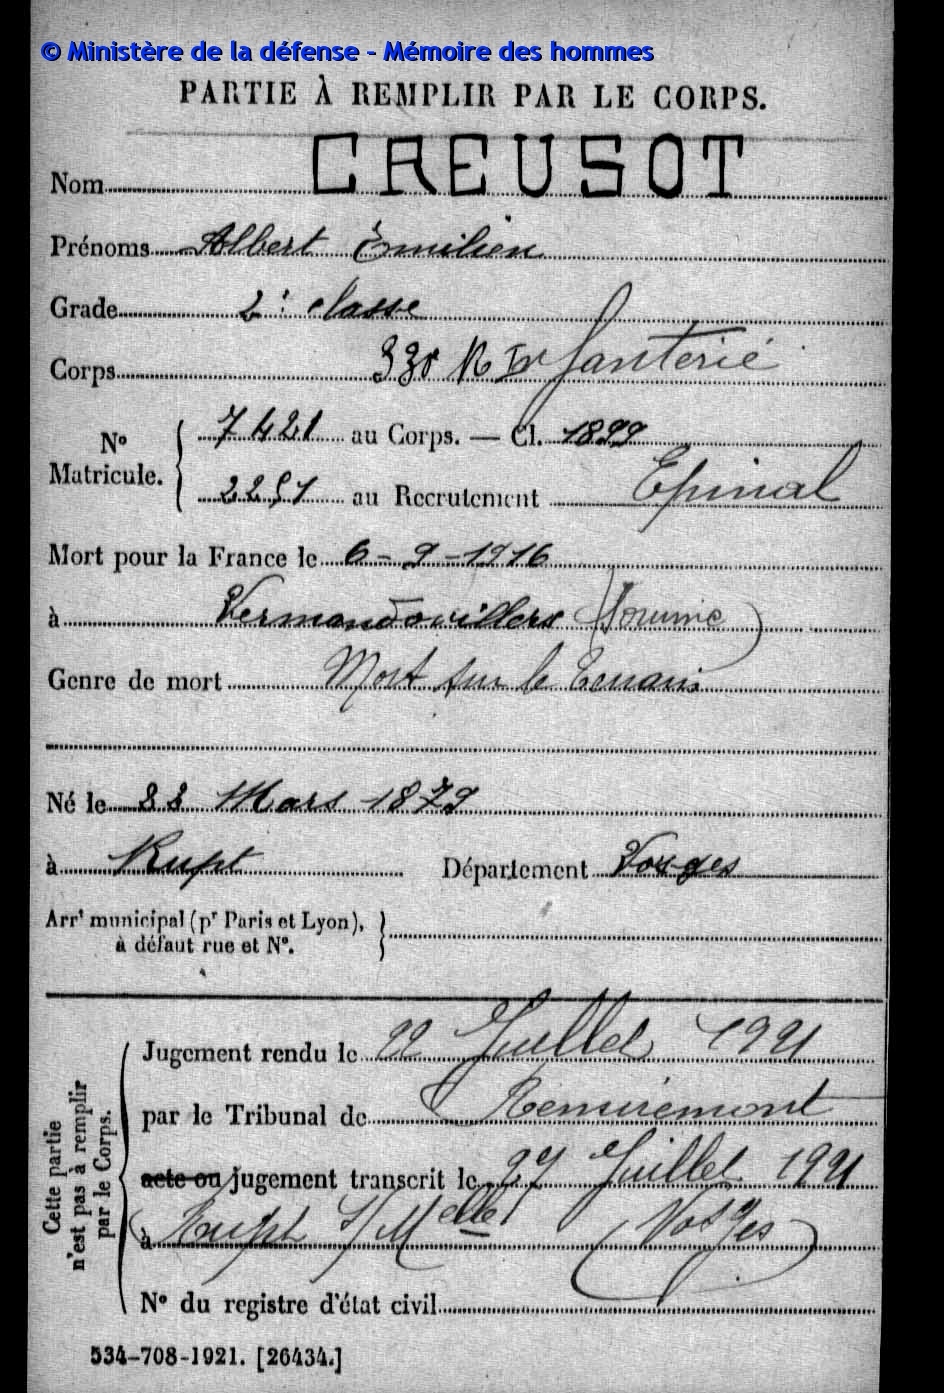 © Ministère de la défense - Mémoire des hommes
PARTIE À REMPLIR PAR LE CORPS.
Nom CREUSOT
Prénoms Albert Émilien
Grade 2e classe
Corps 330 R Infanterie
N° Matricule. { 7421 au Corps. — Cl. 1899
2251 au Recrutement Epinal
Mort pour la France le 6-9-1916
à Vermandovillers (Somme)
Genre de mort Mort sur le terrain
Né le 22 Mars 1879
à Rupt Département Vosges
Arrt municipal (pr Paris et Lyon),
à défaut rue et N°.
Cette partie n'est pas à remplir par le Corps.
Jugement rendu le 22 Juillet 1921
par le Tribunal de Remiremont
acte ou jugement transcrit le 27 Juillet 1921
à Rupt s/Mlle (Vosges)
N° du registre d'état civil
534-708-1921. [26434.]